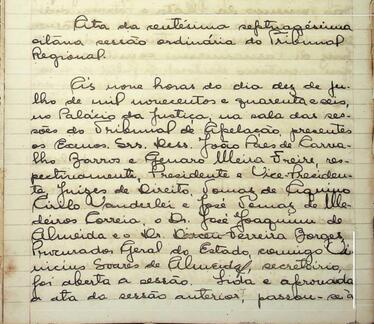 Ata da centésima septuagésima
oitava sessão ordinária do Tribunal
Regional.
Ás nove horas do dia dez de ju-
lho de mil novecentos e quarenta e seis,
no Palácio da Justiça, na sala das ses-
sões do Tribunal de Apelação, presentes
os Exmos. Srs. Dess. João Paes de Carva-
lho Barros e Genaro Meira Freire, res-
pectivamente, Presidente e Vice-Presiden-
te, Juizes de Direito, Tomaz de Aquino
Cirilo Vanderlei e José Tomaz de Me-
deiros Correia, o Dr. José Joaquim de
Almeida e o Dr. Dirceu Ferreira Borges,
Procurador Geral do Estado, comigo Vi-
nicius Soares de Almeida, secretário,
foi aberta a sessão. Lida e aprovada
a ata da sessão anterior, passou-se á